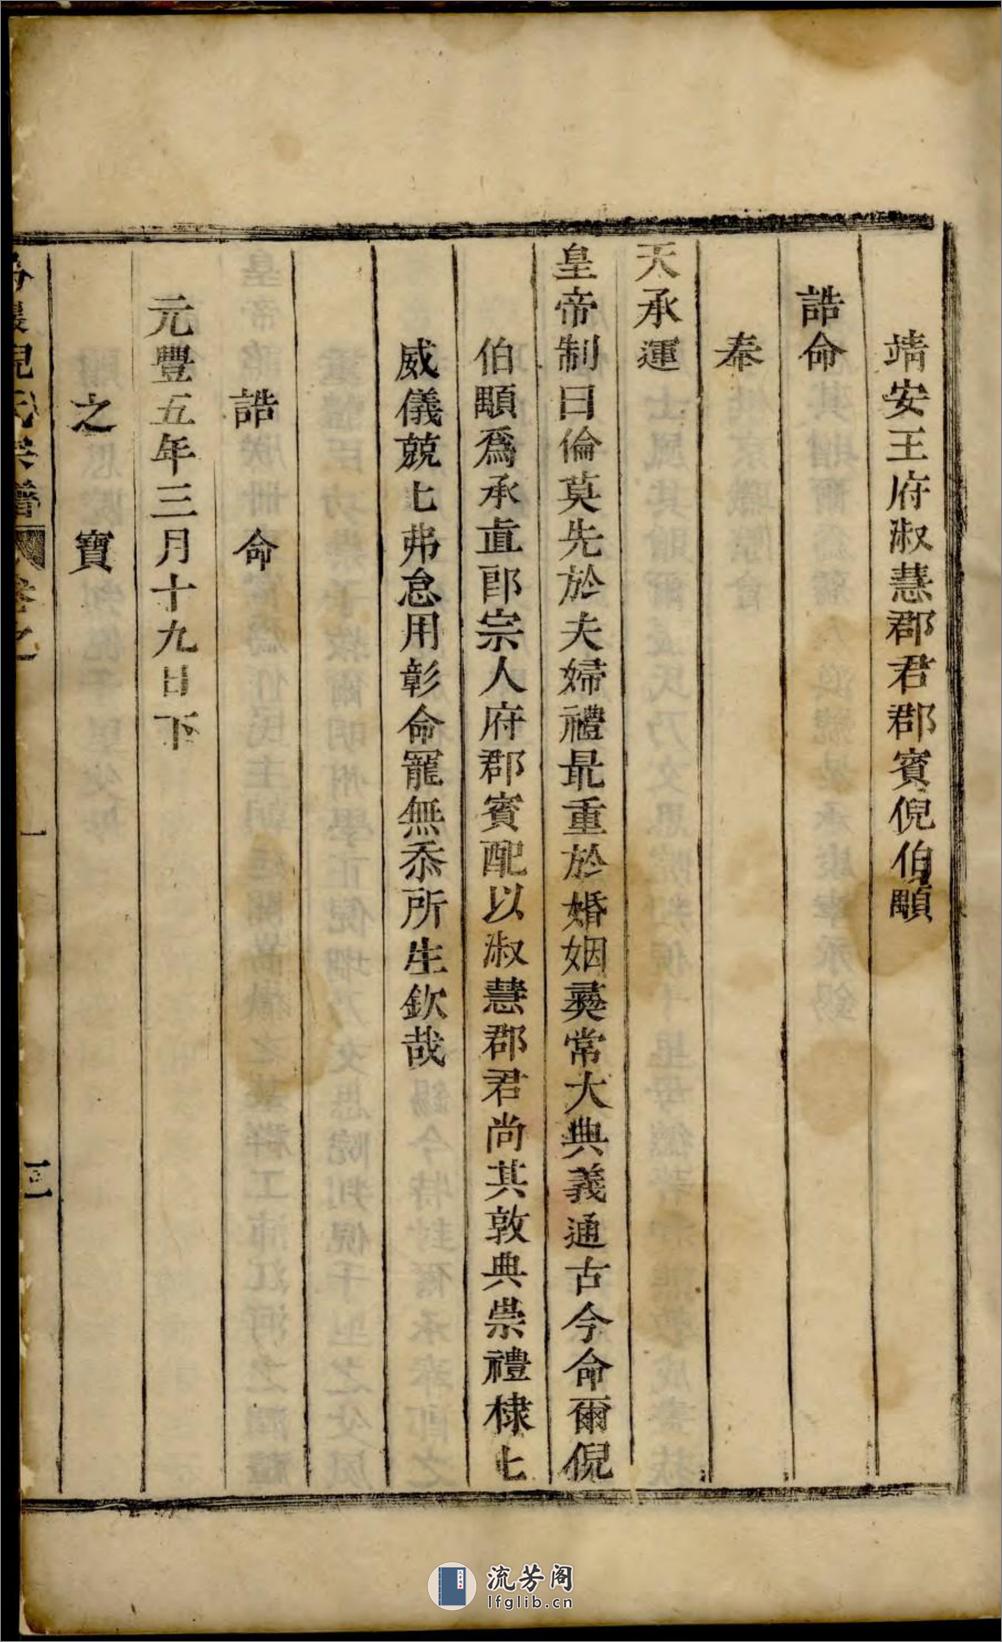 靖安王府淑慧郡君郡賓倪伯顒
誥命
奉
天承運
皇帝制曰倫莫先於夫婦禮最重於婚姻彝常大典義通古今命爾倪
伯顒爲承直郎宗人府郡賓配以淑慧郡君尚其敦典崇禮棣七
威儀兢七弗怠用彰命寵無忝所生欽哉
誥命
元豐五年三月十九日下
之寶
倪氏宗譜 卷之一 三
流芳阁
lfglib.cn